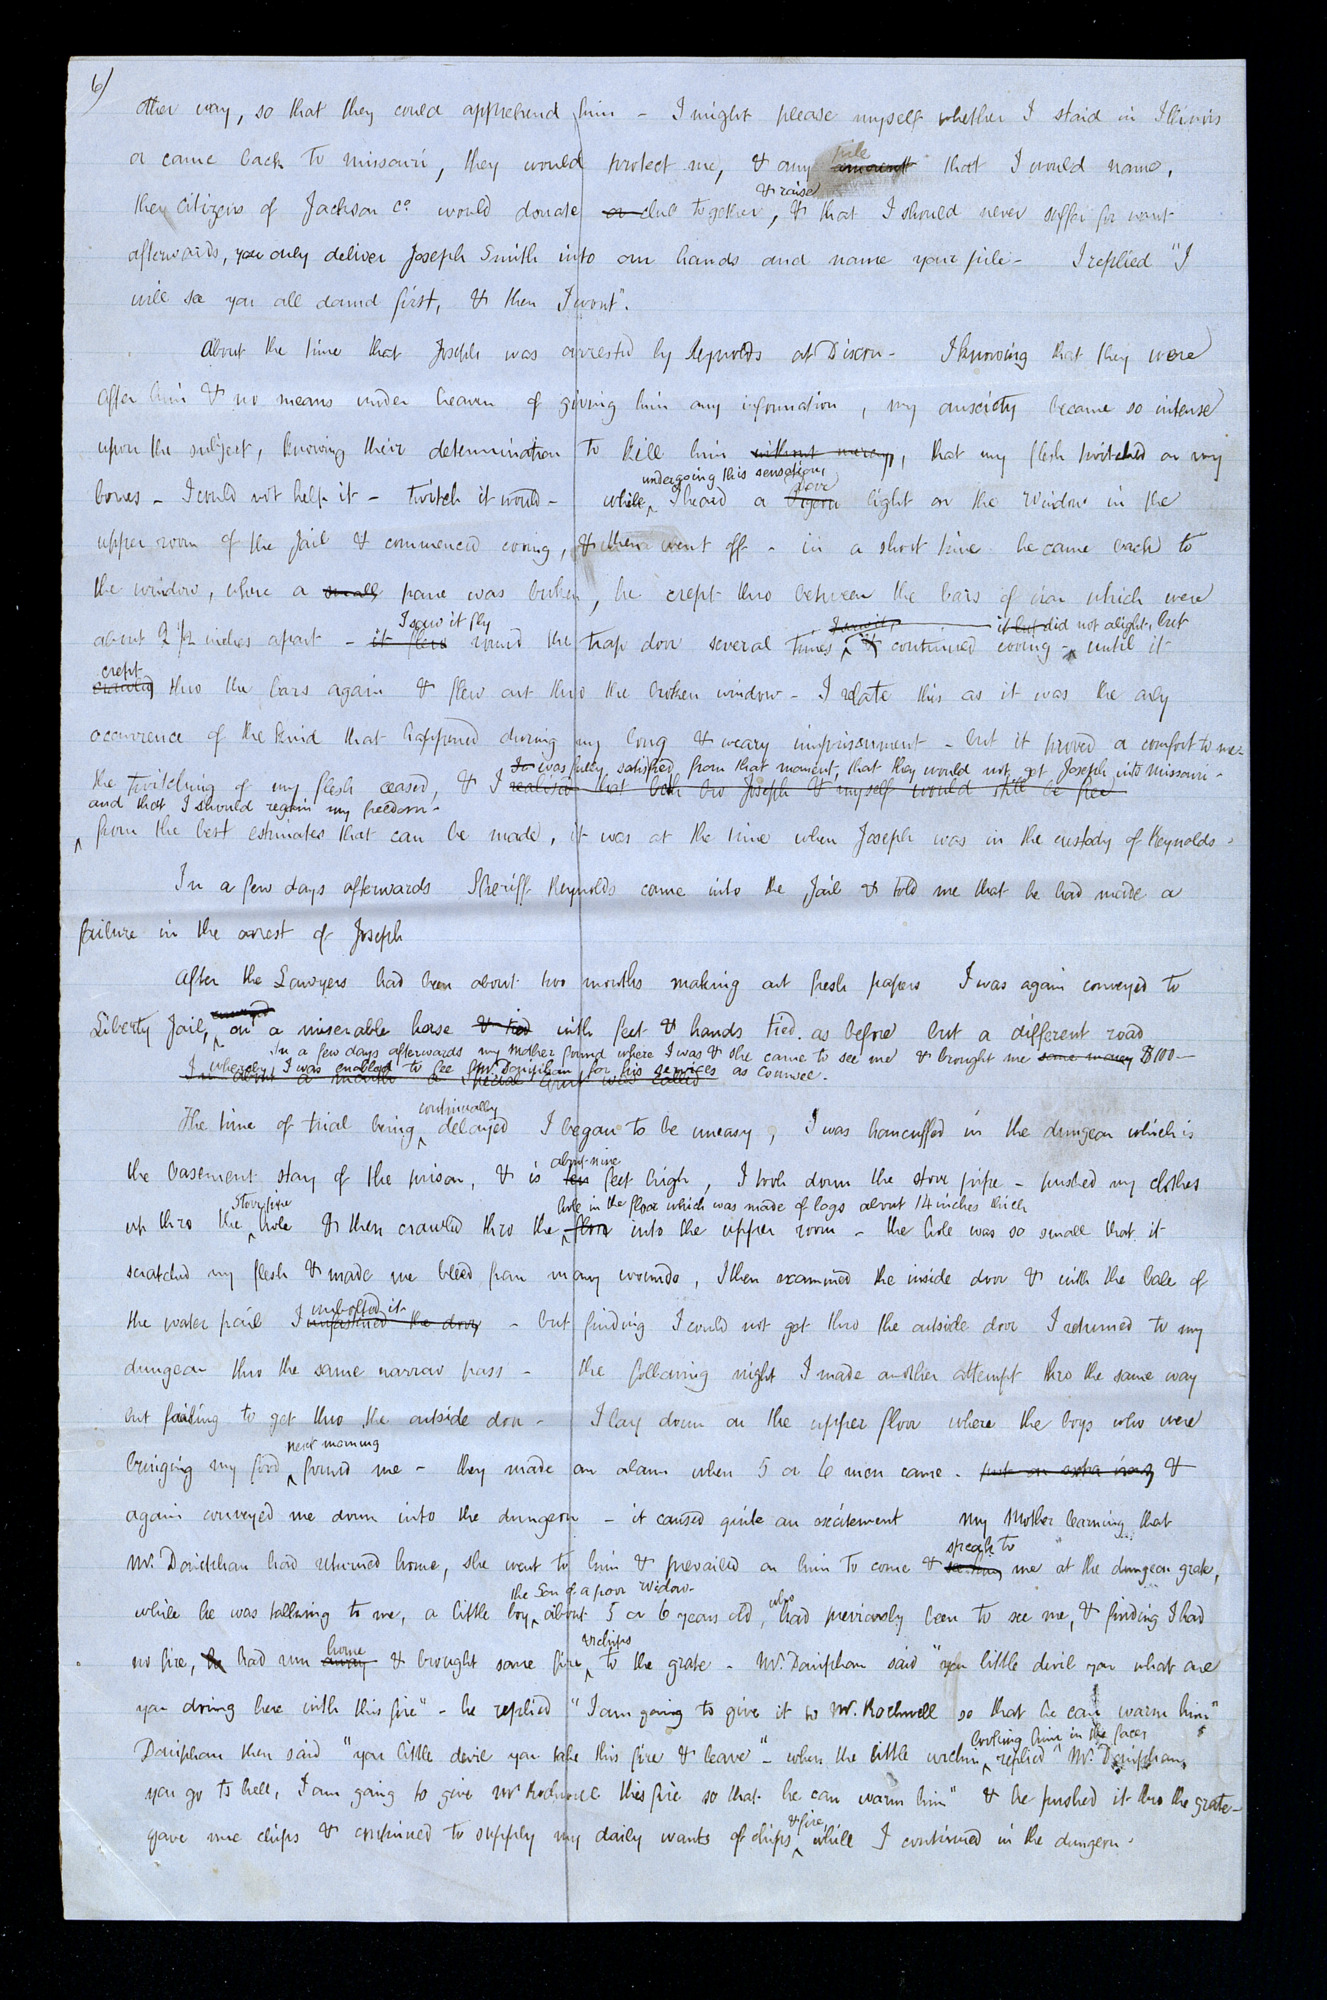 6)
other way, so that they could apprehend him – I might please myself whether I staid in Illinois
or came back to Missouri, they would protect me, & any amount pile that I would name,
& raise
the citizens of Jackson co. would donate or club together, & that I should never suffer for want
afterwards, you only deliver Joseph Smith into our hands and name your pile – I replied "I
will see you all damd first, & then I wont".
About the time that Joseph was arrested by Reynolds at Dixon – I knowing that they were
after him & no means under heaven of giving him any information, my anxiety became so intense
upon the subject, knowing their determination to kill him without mercy, that my flesh twitched on my
undergoing this sensation, dove
bones – I could not help it – twitch it would – while I heard a pigeon light on the window in the
upper room of the jail & commenced cooing, & then went off – in a short time he came back to
the window, where a small pane was broken, he crept thro between the bars of iron which were
I saw it fly it but did not alight, but
about 2 1/2 inches apart – it flew round the trap door several times, it continued cooing – until it
crept
crawled thro the bars again & flew out thro the broken window – I relate this as it was the only
occurrence of the kind that happened during my long & weary imprisonment – but it proved a comfort to me –
was fully satisfied from that moment, that they would not get Joseph into Missouri –
the twitching of my flesh ceased, & I realised that both bro Joseph & myself would still be free
and that I should regain my freedom –
from the best estimates that can be made, it was at the time when Joseph was in the custody of Reynolds –
In a few days afterwards Sheriff Reynolds came into the Jail & told me that he had made a
failure in the arrest of Joseph
After the Lawyers had been about two months making out fresh papers I was again conveyed to
Liberty Jail, on a miserable horse & tied with feet & hands tied as before but a different road
In a few days afterwards my mother found where I was & she came to see me & brought me some money $100–
whereby I was enabled to fee Mr. Doniphan for his services as counsel.
In about a month a special court was called
continually
The time of trial being delayed I began to be uneasy, I was hancuffed in the dungeon which is
about nine
the basement story of the prison, & is ten feet high, I took down the stove pipe – pushed my clothes
Stovepipe hole in the floor which was made of logs about 14 inches thick
up thro the hole & then crawled thro the floor into the upper room – the hole was so small that it
scratched my flesh & made me bleed from many wounds, I then examined the inside door & with the bale of
unbolted it
the water pail I unfastened the door – but finding I could not get thro the outside door I returned to my
dungeon thro the same narrow pass – the following night I made another attempt thro the same way
but failing to get thro the outside door – I lay down on the upper floor where the boys who were
next morning
bringing my food found me – they made an alarm when 5 or 6 men came – put on extra irons &
again conveyed me down into the dungeon – it caused quite an excitement My Mother learning that
speak to
Mr. Doniphan had returned home, she went to him & prevailed on him to come & me at the dungeon grate,
the Son of a poor widow – who
while he was talking to me, a little boy about 5 or 6 years old, had previously been to see me, & finding I had
home & chips
no fire, he had run away & brought some fire to the grate – Mr. Doniphan said "you little devil you what are
you doing here with this fire" – he replied "I am going to give it to Mr. Rockwell so that he can warm him"
looking him in the faces
Doniphan then said "you little devil you take this fire & leave" – when the little urchin replied "Mr. Doniphan,
you go to hell, I am going to give Mr Rockwell this fire so that he can warm him" & he pushed it thro the grate –
& fire
gave me chips & continued to supply my daily wants of chips while I continued in the dungeon.